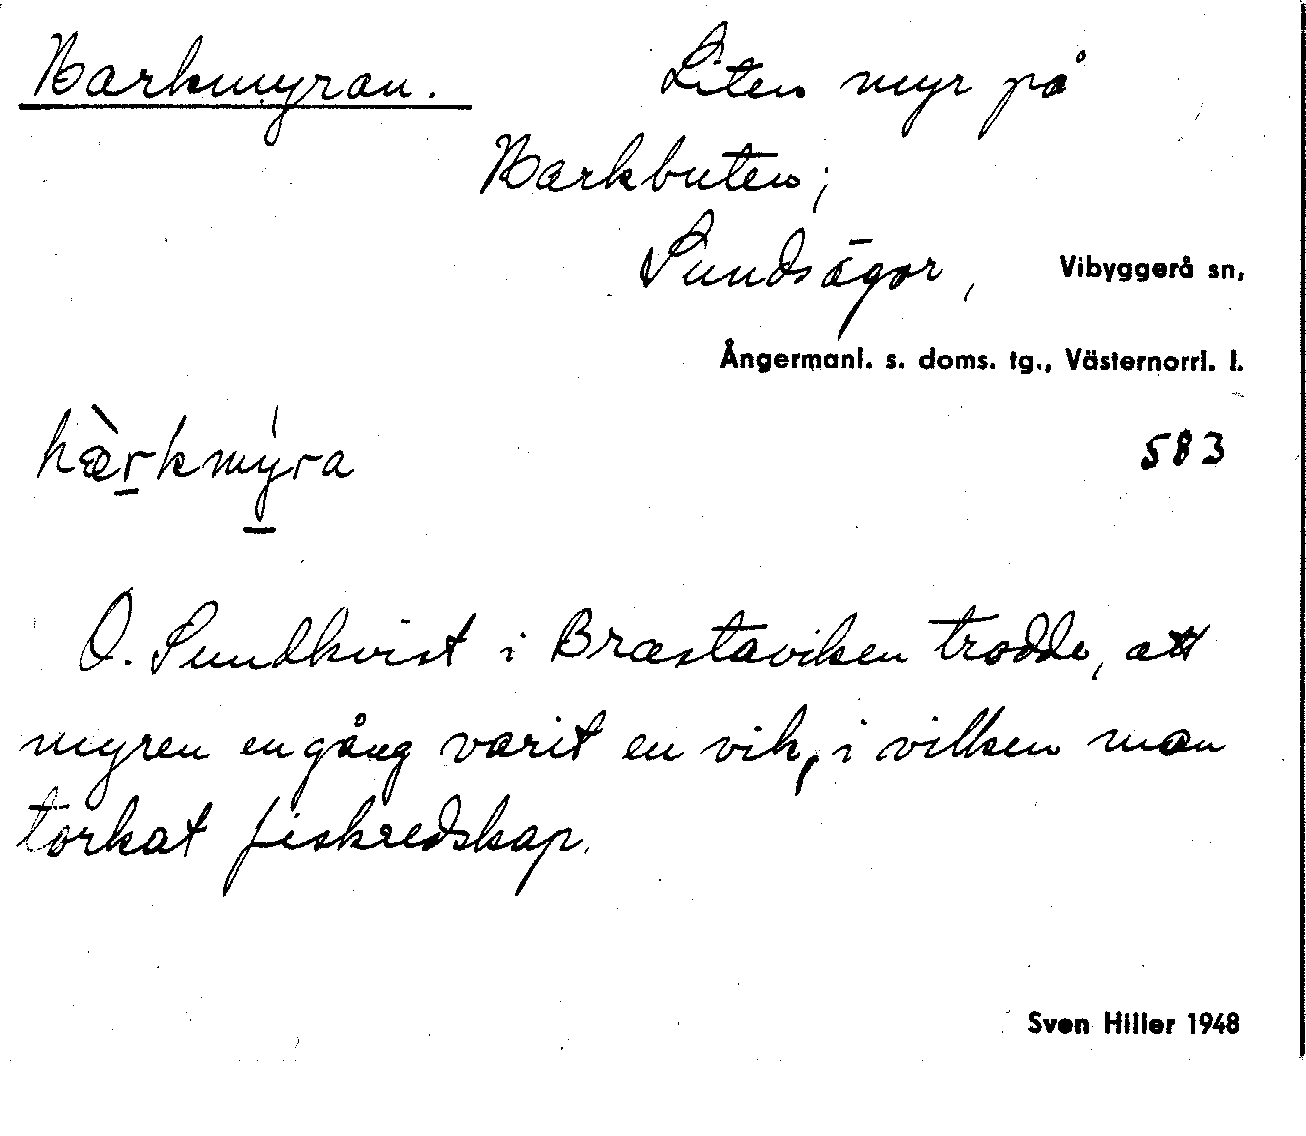 Harkmyran. Liten myr på
Harkbuten;
Sundsägor, Vibyggerå sn,
Ångermanl. s. doms. tg., Västernorrl. l.
hæ̀rkmýra 583
O. Sundkvist i Bræstaviken trodde, att
myren en gång varit en vik, i vilken man
torkat fiskredskap.
Sven Hiller 1948